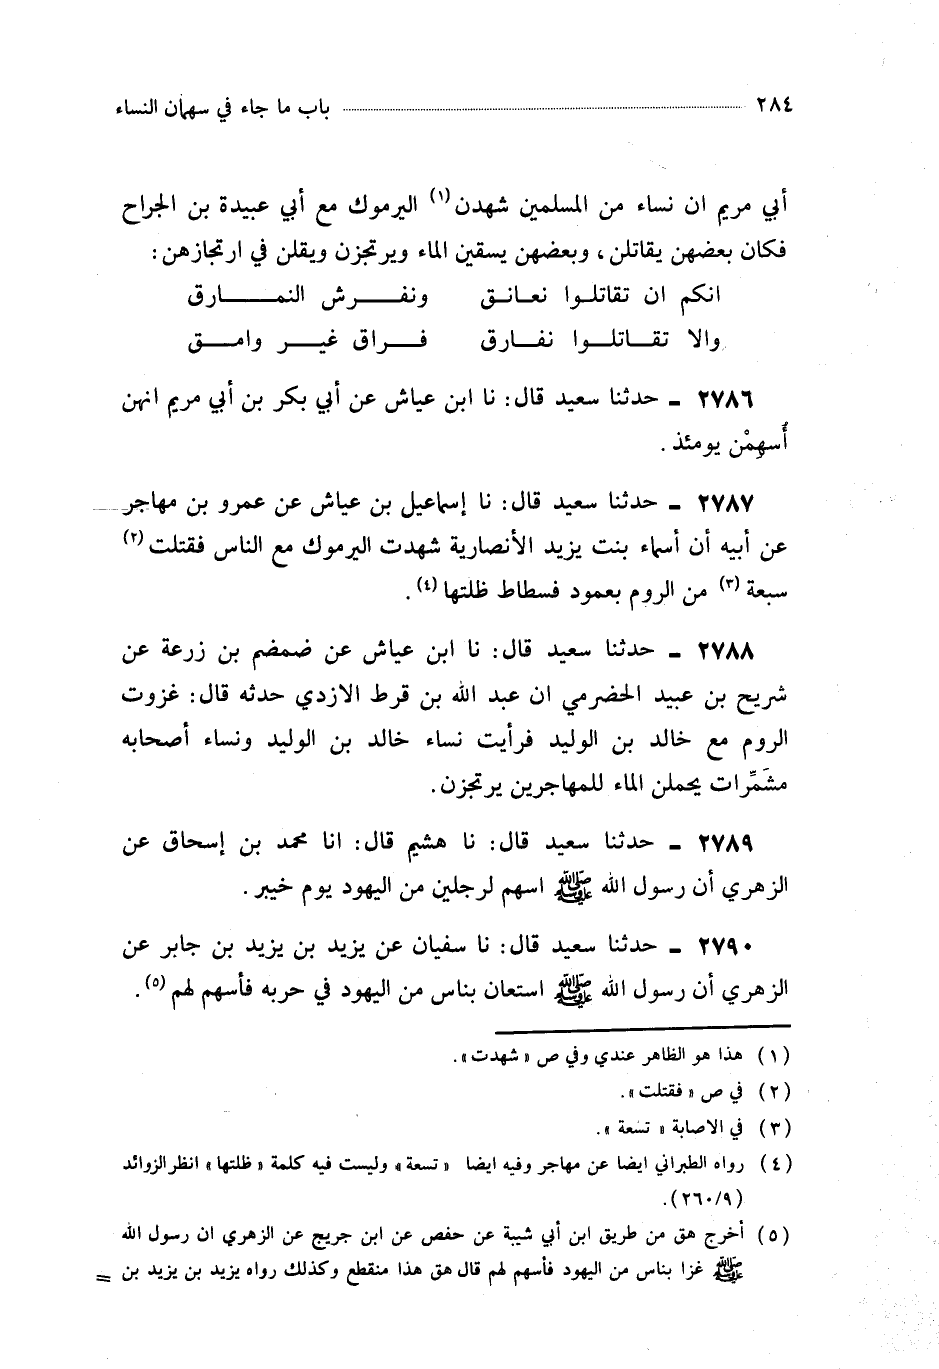 ٢٨٤ باب ما جاء في سهمان النساء
أبي مريم ان نساء من المسلمين شهدن (١) اليرموك مع أبي عبيدة بن الجراح
فكان بعضهن يقاتلن، وبعضهن يسقين الماء ويرتجزن ويقلن في ارتجازهن:
انكم ان تقاتلوا نعانق ونفرش النمارق
والا تقاتلوا نفارق فراق غير وامق
٢٧٨٦ ـ حدثنا سعيد قال: نا ابن عياش عن أبي بكر بن أبي مريم انهن
أُسهِمْن يومئذ.
٢٧٨٧ ـ حدثنا سعيد قال: نا إسماعيل بن عياش عن عمرو بن مهاجر
عن أبيه أن أسماء بنت يزيد الأنصارية شهدت اليرموك مع الناس فقتلت (٢)
سبعة (٣) من الروم بعمود فسطاط ظلتها (٤).
٢٧٨٨ ـ حدثنا سعيد قال: نا ابن عياش عن ضمضم بن زرعة عن
شريح بن عبيد الحضرمي ان عبد الله بن قرط الازدي حدثه قال: غزوت
الروم مع خالد بن الوليد فرأيت نساء خالد بن الوليد ونساء أصحابه
مشَمِّرات يحملن الماء للمهاجرين يرتجزن.
٢٧٨٩ ـ حدثنا سعيد قال: نا هشيم قال: انا محمد بن إسحاق عن
الزهري أن رسول الله ﷺ اسهم لرجلين من اليهود يوم خيبر.
٢٧٩٠ ـ حدثنا سعيد قال: نا سفيان عن يزيد بن يزيد بن جابر عن
الزهري أن رسول الله ﷺ استعان بناس من اليهود في حربه فأسهم لهم (٥).
(١) هذا هو الظاهر عندي وفي ص «شهدت».
(٢) في ص «فقتلت».
(٣) في الاصابة «تسعة».
(٤) رواه الطبراني ايضا عن مهاجر وفيه ايضا «تسعة» وليست فيه كلمة «ظلتها» انظر الزوائد
(٢٦٠/٩).
(٥) أخرج هق من طريق ابن أبي شيبة عن حفص عن ابن جريج عن الزهري ان رسول الله
ﷺ غزا بناس من اليهود فأسهم لهم قال هق هذا منقطع وكذلك رواه يزيد بن يزيد بن =